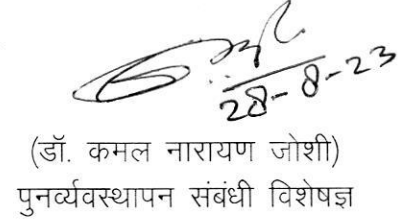 28-8-23
(डॉ. कमल नारायण जोशी)
पुनर्व्यवस्थापन संबंधी विशेषज्ञ